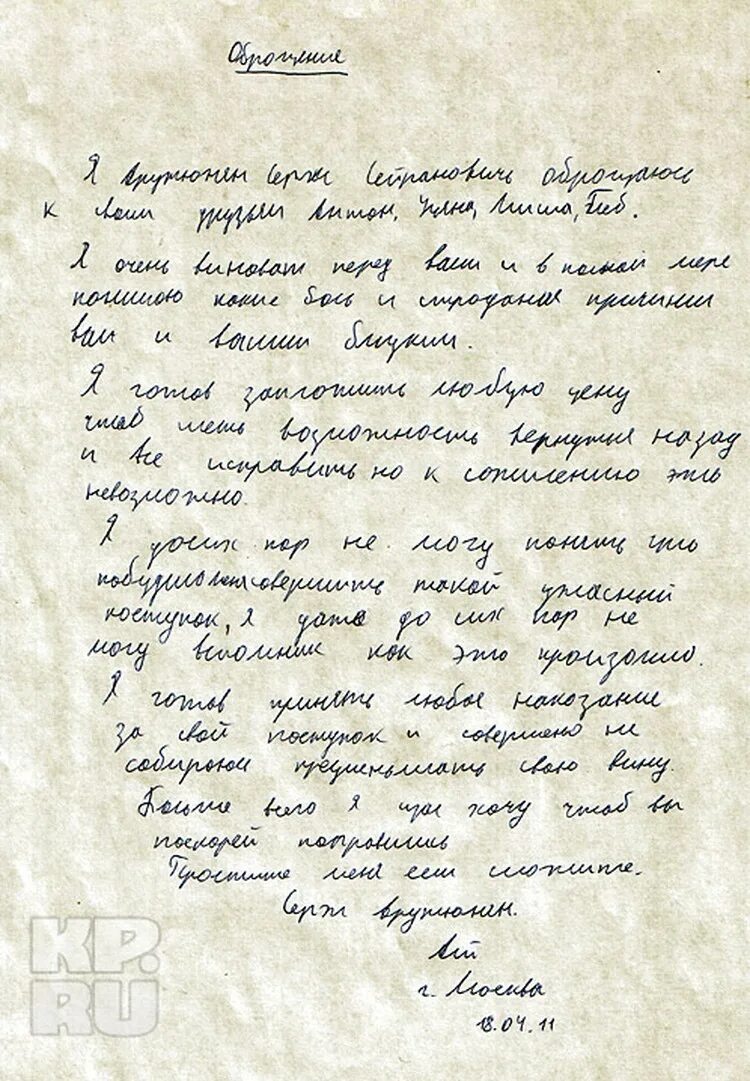 Обращение
Я Арутюнен Серж Сетранович обращаюсь
к своим друзьям Антон, Уляна, Миша, Глеб.
Я очень виноват перед вами и в полной мере
понимаю какие боль и страдания причинил
вам и вашим близким.
Я готов заплотить любую цену
чтоб меть возможность вернутья назад
и все исправить но к сожилению это
невозможно.
Я досих пор не могу понять что
побудило меня совершить такой ужасный
поступок, я даже до сих пор не
могу вспомник как это произошло.
Я готов принять любое накозание
за свой поступок и совершено не
собираюсь преуменьшать свою вину.
Больше всего я щас хочу чтоб вы
поскорей поправились
Простите меня если сможите.
Серж Арутюнен.
г. Москва
18.04.11
KP.
RU